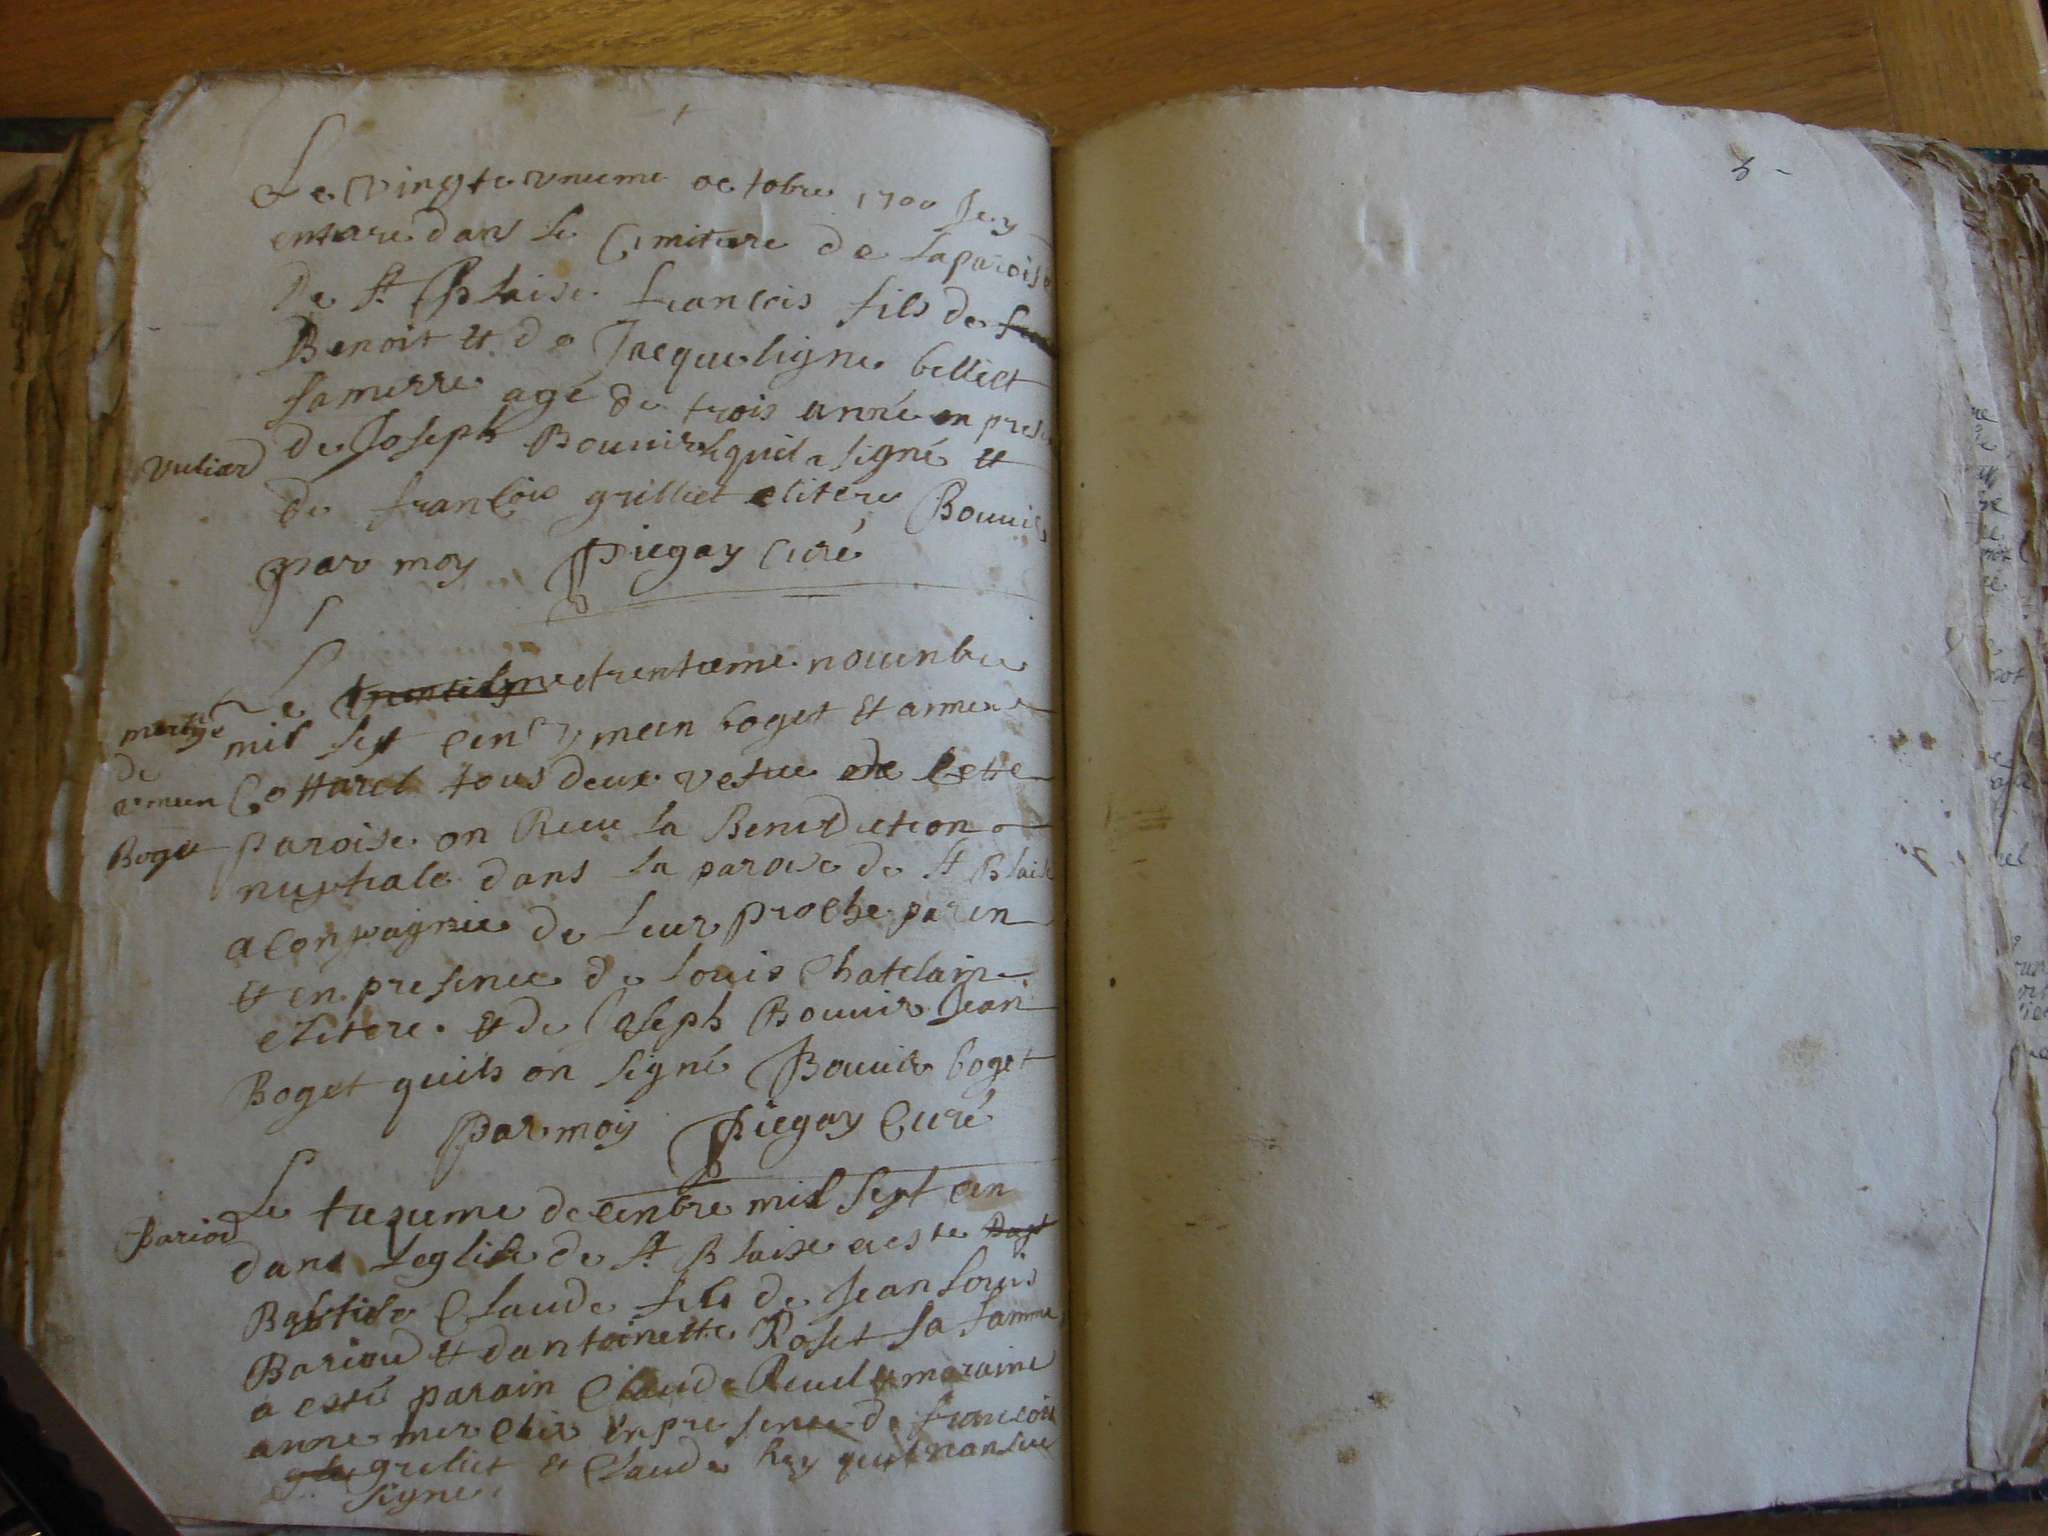 Le vingte vnieme octobre 1700 Jey
enterre dans le Cimitiere de la parois
de St Blaise francois fils de
Benoit et de Jacqueligne belliet
sa merre agé de trois année en pres
de Joseph Bouuir quil a signé et
vuliard
de francois grilliet elitere Bouuir
par moy Piegay Curé
Le trentieme nouenbre
mil sept cen ymen boget et
mariage
de
ymen
Boget
Cottarel tous deux vestue de Cette
paroise on Recu la Benediction
nuptiale dans la paroise de St Blaise
aconpagnie de leur proche paren
et en presence de louis Chatelain
elitere et de Joseph Bouuir Jean
Boget quils on signé Bouuir boget
par moy Piegay Curé
Le trezieme decenbre mil sept cen
Bariod
dans leglise de St Blaise a este
Baptise Claude fils de Jean louis
Bariod et dantoinette Roset sa famme
a esté parain Claude Reuel et maraine
anne mercier en presence de francois
greliet et Claude Rey qui nan seu
signe